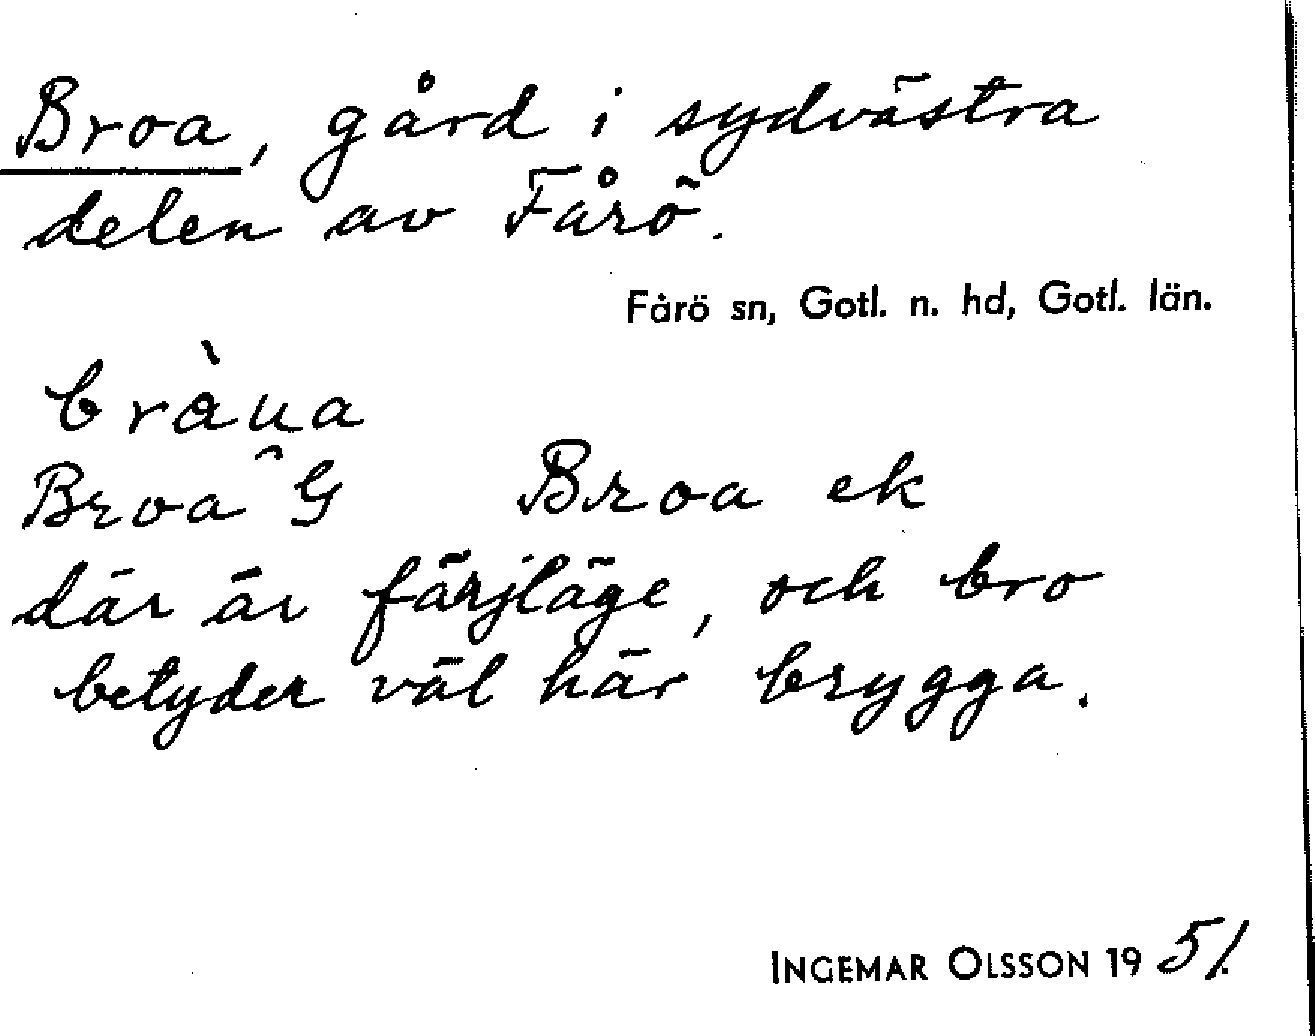 Broa, gård i sydvästra
delen av Fårö.
Fårö sn, Gotl. n. hd, Gotl. län.
bràu̯a
Broa G Broa ek
där är färjläge, och bro
betyder väl här brygga.
INGEMAR OLSSON 1951